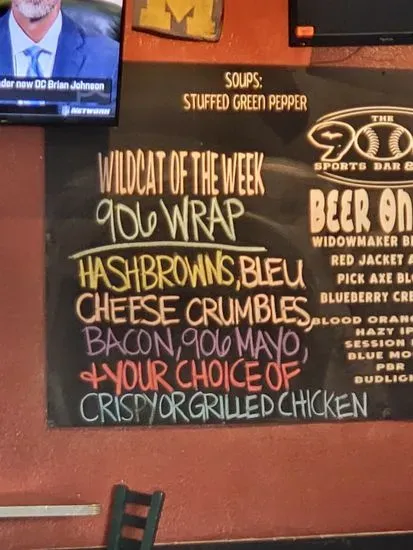 M
der new OC Brian Johnson
NETWORK
SOUPS:
STUFFED GREEN PEPPER
WILDCAT OF THE WEEK
906 WRAP
HASHBROWNS, BLEU
CHEESE CRUMBLES,
BACON, 906 MAYO,
+ YOUR CHOICE OF
CRISPY OR GRILLED CHICKEN
THE
906
SPORTS BAR &
BEER ON
WIDOWMAKER B
RED JACKET A
PICK AXE BL
BLUEBERRY CRE
BLOOD ORAN
HAZY IP
SESSION
BLUE MO
PBR
BUDLIGH